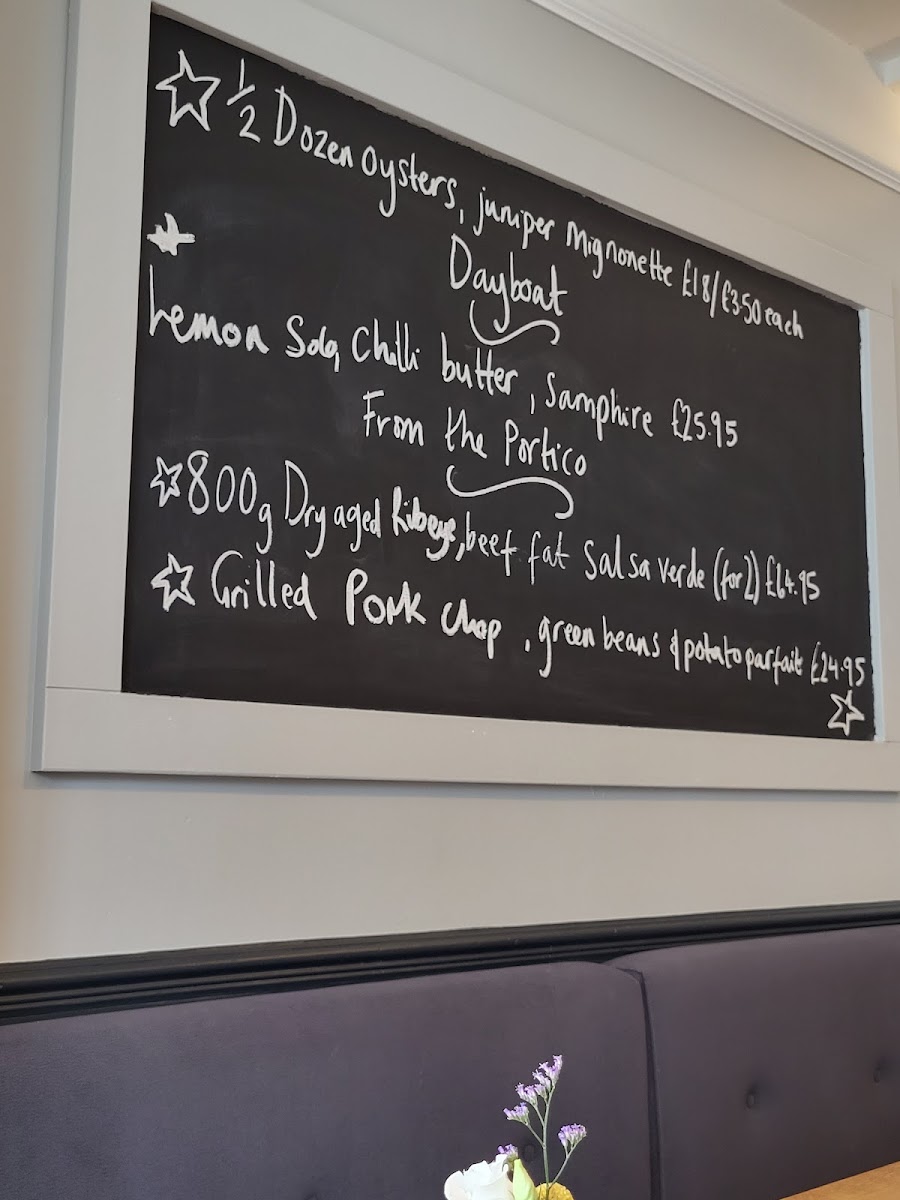 ½ Dozen oysters, juniper Mignonette £18/£3.50 each
Dayboat
Lemon Sole, Chilli butter, Samphire £25.95
From the Portico
800g Dry aged Ribeye, beef fat Salsa verde (for 2) £64.95
Grilled Pork Chop, green beans & potato parfait £24.95